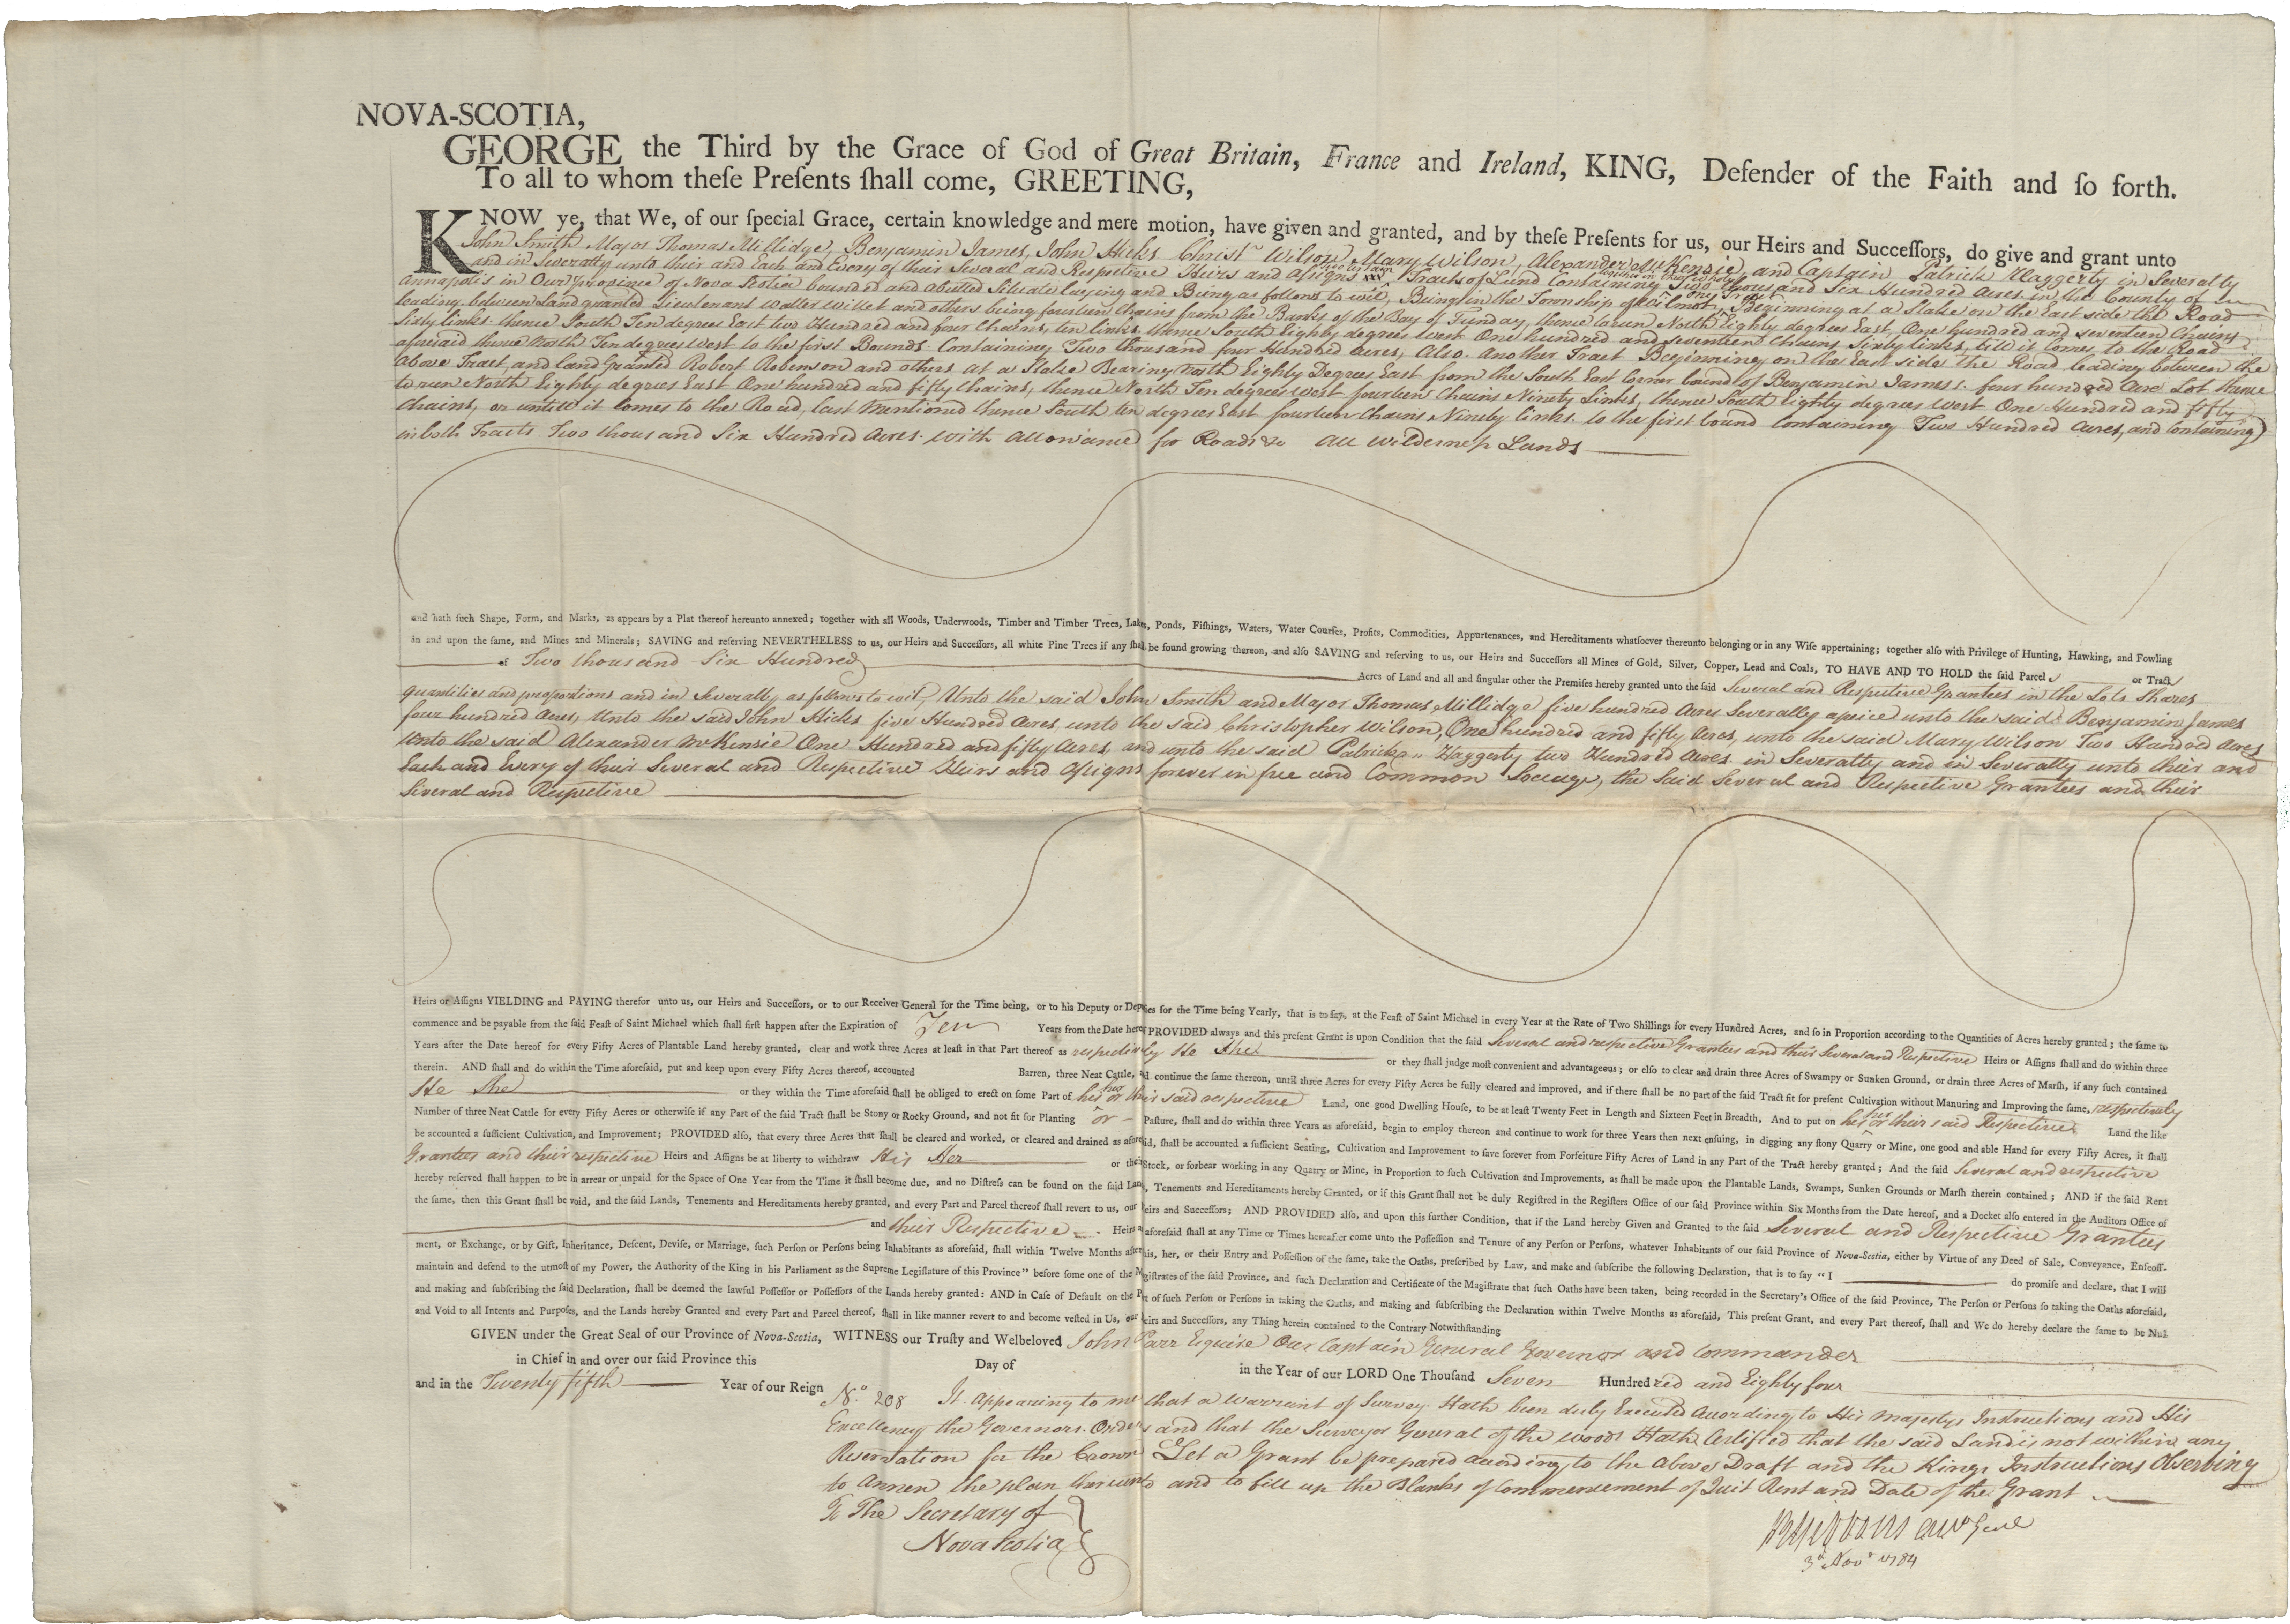 NOVA-SCOTIA,
GEORGE the Third by the Grace of God of Great Britain, France and Ireland, KING, Defender of the Faith and ſo forth.
To all to whom theſe Preſents ſhall come, GREETING,
KNOW ye, that We, of our ſpecial Grace, certain knowledge and mere motion, have given and granted, and by theſe Preſents for us, our Heirs and Succeſſors, do give and grant unto
John Smith Major Thomas Millidge, Benjamin James, John Hicks Christr Wilson Mary Wilson, Alexander McKensie, and Captain Patrick Haggerty in Severalty
and in Severalty unto their and Each and Every of their Several and Respective Heirs and Assigns Tracts of Land Containing Two thousand Six Hundred Acres in the County of
Annapolis in Our Province of Nova Scotia bounded and abutted Situate laying and Being as follows to wit, Being in the Township of Wilmot, one Tract Beginning at a Stake on the East side the Road
leading between Land granted Lieutenant Walter Willet and others being fourteen Chains from the Banks of the Bay of Funday, thence to run North Eighty degrees East, One hundred and seventeen Chains
Sixty links thence South Ten degrees East two Hundred and four Chains, ten links thence South Eighty degrees west One hundred and seventeen Chains Sixty links, till it comes to the Road
aforesaid thence North Ten degrees West to the first Bounds Containing Two thousand four Hundred Acres, Also another Tract Beginning on the East side the Road leading between the
Above Tract, and land Granted Robert Robinson and others at a Stake Bearing North Eighty Degrees East from the South East Corner bound of Benjamin James's four hundred Acre Lot thence
to run North Eighty degrees East One hundred and fifty Chains, thence North Ten degrees West fourteen Chains Ninety Links, thence South Eighty degrees West One Hundred and fifty
Chains, or untill it comes to the Road, last Mentioned thence South ten degrees East fourteen Chains Ninety links to the first bound Containing Two Hundred Acres, and Containing
in both Tracts Two thousand Six Hundred Acres with allowance for Roads &c All Wilderness Lands
and hath ſuch Shape, Form, and Marks, as appears by a Plat thereof hereunto annexed; together with all Woods, Underwoods, Timber and Timber Trees, Lakes, Ponds, Fiſhings, Waters, Water Courſes, Profits, Commodities, Appurtenances, and Hereditaments whatſoever thereunto belonging or in any Wiſe appertaining; together alſo with Privilege of Hunting, Hawking, and Fowling
in and upon the ſame, and Mines and Minerals; SAVING and reſerving NEVERTHELESS to us, our Heirs and Succeſſors, all white Pine Trees if any ſhall be found growing thereon, and alſo SAVING and reſerving to us, our Heirs and Succeſſors all Mines of Gold, Silver, Copper, Lead and Coals, TO HAVE AND TO HOLD the ſaid Parcel or Tract
of Two thousand Six Hundred Acres of Land and all and ſingular other the Premiſes hereby granted unto the ſaid Several and Respective Grantees in the Lots Shares
quantities and proportions and in Severalty as follows to wit, Unto the said John Smith and Major Thomas Millidge five hundred Acres Severally apiece unto the said Benjamin James
four hundred Acres, Unto the said John Hicks five Hundred Acres unto the said Christopher Wilson, One hundred and fifty Acres, unto the said Mary Wilson Two Hundred Acres
Unto the said Alexander McKensie One Hundred and fifty Acres, and unto the said Patrick Haggerty two Hundred Acres in Severalty and in Severalty unto their and
Each and Every of their Several and Respective Heirs and Assigns forever in free and Common Soccage, the Said Several and Respective Grantees and their
Several and Respective
Heirs or Aſſigns YIELDING and PAYING therefor unto us, our Heirs and Succeſſors, or to our Receiver General for the Time being, or to his Deputy or Deputies for the Time being Yearly, that is to ſay, at the Feaſt of Saint Michael in every Year at the Rate of Two Shillings for every Hundred Acres, and ſo in Proportion according to the Quantities of Acres hereby granted; the ſame to
commence and be payable from the ſaid Feaſt of Saint Michael which ſhall firſt happen after the Expiration of Ten Years from the Date hereof PROVIDED always and this preſent Grant is upon Condition that the ſaid Several and respective Grantees and their Several and Respective Heirs or Aſſigns ſhall and do within three
Years after the Date hereof for every Fifty Acres of Plantable Land hereby granted, clear and work three Acres at leaſt in that Part thereof as respectively He She or they ſhall judge moſt convenient and advantageous; or elſe to clear and drain three Acres of Swampy or Sunken Ground, or drain three Acres of Marſh, if any ſuch contained
therein. AND ſhall and do within the Time aforeſaid, put and keep upon every Fifty Acres thereof, accounted Barren, three Neat Cattle, and continue the ſame thereon, until three Acres for every Fifty Acres be fully cleared and improved, and if there ſhall be no part of the ſaid Tract fit for preſent Cultivation without Manuring and Improving the ſame, respectively
He She or they within the Time aforeſaid ſhall be obliged to erect on ſome Part of his her or their said respective Land, one good Dwelling Houſe, to be at leaſt Twenty Feet in Length and Sixteen Feet in Breadth, And to put on his her or their said Respective Land the like
Number of three Neat Cattle for every Fifty Acres or otherwiſe if any Part of the ſaid Tract ſhall be Stony or Rocky Ground, and not fit for Planting or Paſture, ſhall and do within three Years as aforeſaid, begin to employ thereon and continue to work for three Years then next enſuing, in digging any ſtony Quarry or Mine, one good and able Hand for every Fifty Acres, it ſhall
be accounted a ſufficient Cultivation, and Improvement; PROVIDED alſo, that every three Acres that ſhall be cleared and worked, or cleared and drained as aforeſaid, ſhall be accounted a ſufficient Seating, Cultivation and Improvement to ſave forever from Forfeiture Fifty Acres of Land in any Part of the Tract hereby granted; And the ſaid Several and respective
Grantees and their respective Heirs and Aſſigns be at liberty to withdraw His Her or their Stock, or forbear working in any Quarry or Mine, in Proportion to ſuch Cultivation and Improvements, as ſhall be made upon the Plantable Lands, Swamps, Sunken Grounds or Marſh therein contained; AND if the ſaid Rent
hereby reſerved ſhall happen to be in arrear or unpaid for the Space of One Year from the Time it ſhall become due, and no Diſtreſs can be found on the ſaid Land, Tenements and Hereditaments hereby Granted, or if this Grant ſhall not be duly Regiſtred in the Regiſters Office of our ſaid Province within Six Months from the Date hereof, and a Docket alſo entered in the Auditors Office of
the ſame, then this Grant ſhall be void, and the ſaid Lands, Tenements and Hereditaments hereby granted, and every Part and Parcel thereof ſhall revert to us, our Heirs and Succeſſors; AND PROVIDED alſo, and upon this further Condition, that if the Land hereby Given and Granted to the ſaid Several and Respective Grantees
and their Respective Heirs as aforeſaid ſhall at any Time or Times hereafter come unto the Poſſeſſion and Tenure of any Perſon or Perſons, whatever Inhabitants of our ſaid Province of Nova-Scotia, either by Virtue of any Deed of Sale, Conveyance, Enfeoff-
ment, or Exchange, or by Gift, Inheritance, Deſcent, Deviſe, or Marriage, ſuch Perſon or Perſons being Inhabitants as aforeſaid, ſhall within Twelve Months after his, her, or their Entry and Poſſeſſion of the ſame, take the Oaths, preſcribed by Law, and make and ſubſcribe the following Declaration, that is to ſay "I do promiſe and declare, that I will
maintain and defend to the utmoſt of my Power, the Authority of the King in his Parliament as the Supreme Legiſlature of this Province" before ſome one of the Magiſtrates of the ſaid Province, and ſuch Declaration and Certificate of the Magiſtrate that ſuch Oaths have been taken, being recorded in the Secretary's Office of the ſaid Province, The Perſon or Perſons ſo taking the Oaths aforeſaid,
and making and ſubſcribing the ſaid Declaration, ſhall be deemed the lawful Poſſeſſor or Poſſeſſors of the Lands hereby granted: AND in Caſe of Default on the Part of ſuch Perſon or Perſons in taking the Oaths, and making and ſubſcribing the Declaration within Twelve Months as aforeſaid, This preſent Grant, and every Part thereof, ſhall and We do hereby declare the ſame to be Null
and Void to all Intents and Purpoſes, and the Lands hereby Granted and every Part and Parcel thereof, ſhall in like manner revert to and become veſted in Us, our Heirs and Succeſſors, any Thing herein contained to the Contrary Notwithſtanding
GIVEN under the Great Seal of our Province of Nova-Scotia, WITNESS our Truſty and Welbeloved John Parr Esquire Our Captain General Governor and Commander
in Chief in and over our ſaid Province this Day of in the Year of our LORD One Thouſand Seven Hundred and Eighty four
and in the Twenty fifth Year of our Reign
No. 208 It appearing to me that a Warrant of Survey Hath been duly Executed according to His Majestys Instructions and His
Excellency the Governors Orders and that the Surveyor General of the Woods Hath Certified that the said Land is not within any
Reservation for the Crown Let a Grant be prepared according to the above Draft and the Kings Instructions Observing
to Annex the plan thereunto and to fill up the Blanks of Commencement of Quit Rent and Date of the Grant
To The Secretary of
Nova Scotia
3d Novr 1784